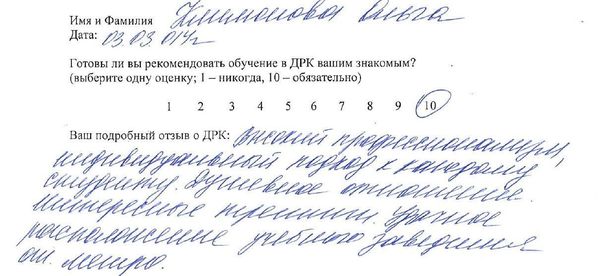 Имя и Фамилия Климонова Ольга
Дата: 03.03.014г
Готовы ли вы рекомендовать обучение в ДРК вашим знакомым?
(выберите одну оценку; 1 – никогда, 10 – обязательно)
1 2 3 4 5 6 7 8 9 10
Ваш подробный отзыв о ДРК: Высокий профессионализм,
индивидуальный подход к каждому
студенту. Душевное отношение.
Интересные тренинги. Удачное
расположение учебного заведения
от метро.